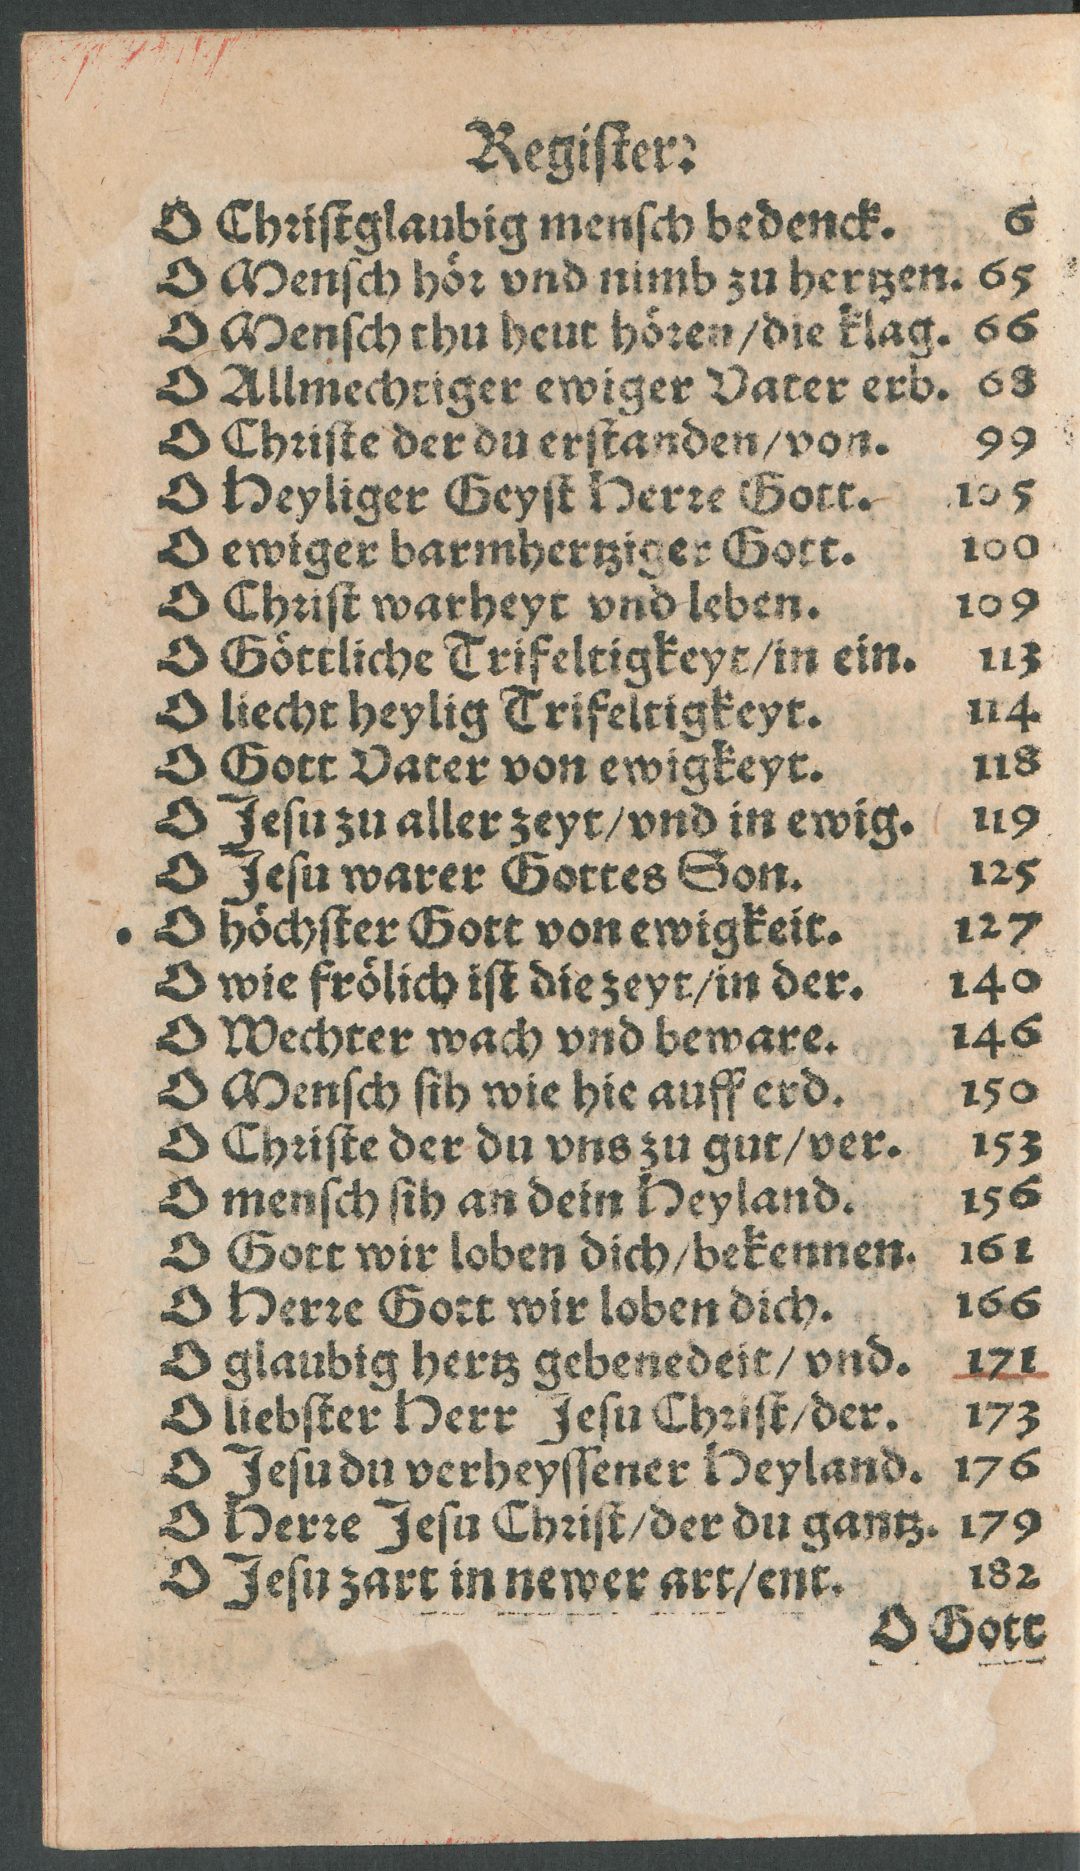 Register.
O Christglaubig mensch bedenck. 6
O Mensch hör vnd nimb zu hertzen. 65
O Mensch thu heut hören/die klag. 66
O Allmechtiger ewiger Vater erb. 68
O Christe der du erstanden/von. 99
O Heyliger Geyst Herre Gott. 105
O ewiger barmhertziger Gott. 100
O Christ warheyt vnd leben. 109
O Göttliche Trifeltigkeyt/in ein. 113
O liecht heylig Trifeltigkeyt. 114
O Gott Vater von ewigkeyt. 118
O Jesu zu aller zeyt/vnd in ewig. 119
O Jesu warer Gottes Son. 125
O höchster Gott von ewigkeit. 127
O wie frölich ist die zeyt/in der. 140
O Wechter wach vnd beware. 146
O Mensch sih wie hie auff erd. 150
O Christe der du vns zu gut/ver. 153
O mensch sih an dein Heyland. 156
O Gott wir loben dich/bekennen. 161
O Herre Gott wir loben dich. 166
O glaubig hertz gebenedeit/ vnd. 171
O liebster Herr Jesu Christ/der. 173
O Jesu du verheyssener Heyland. 176
O Herre Jesu Christ/der du gantz. 179
O Jesu zart in newer art/ent. 182
O Gott